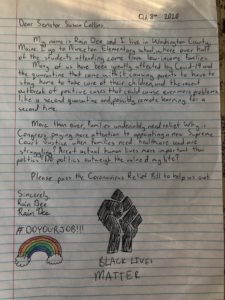 Oct 8th 2020
Dear Senator Susan Collins,
My name is Rain Dee and I live in Washington County
Maine. I go to Princeton Elementary school, where over half
of the students attending come from low-income families.
Many of us have been greatly affected by Covid-19 and
the quarantine that came with it causing parents to have to
stay home to take care of their children, and the recent
outbreak of positive cases that could cause even more problems
like a second quarantine and possibly remote learning for a
second time.
More than ever, families undeniably need relief. Why is
Congress paying more attention to appointing a new Supreme
Court Justice when families need healthcare and are
struggling? Aren't actual human lives more important than
politics? Do politics outweigh the value of rights?
Please pass the Coronavirus Relief Bill to help us out.
Sincerely,
Rain Dee
Rain Dee
#DOYOURJOB!!!
BLACK LIVES
MATTER